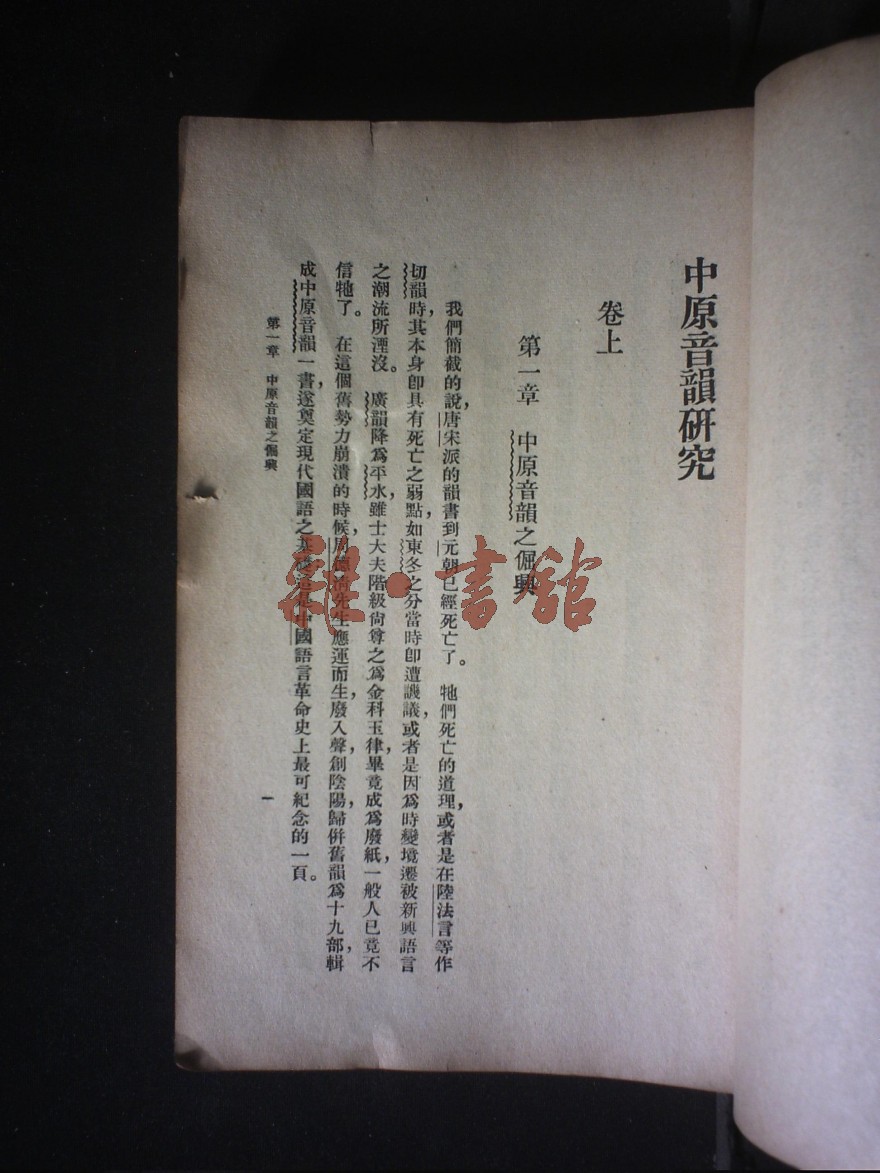 中原音韻研究
卷上
第一章 中原音韻之倔興
我們簡截的說，唐宋派的韻書到元朝已經死亡了。牠們死亡的道理，或者是在陸法言等作
切韻時，其本身卽具有死亡之弱點，如東冬之分當時卽遭譏議，或者是因爲時變境遷被新興語言
之潮流所湮沒。廣韻降爲平水，雖士大夫階級尙尊之爲金科玉律，畢竟成爲廢紙，一般人已竟不
信牠了。在這個舊勢力崩潰的時候，周德淸先生應運而生，廢入聲，創陰陽，歸倂舊韻爲十九部，輯
成中原音韻一書，遂奠定現代國語之基礎，這是中國語言革命史上最可紀念的一頁。
第一章 中原音韻之倔興
一
雜·書館